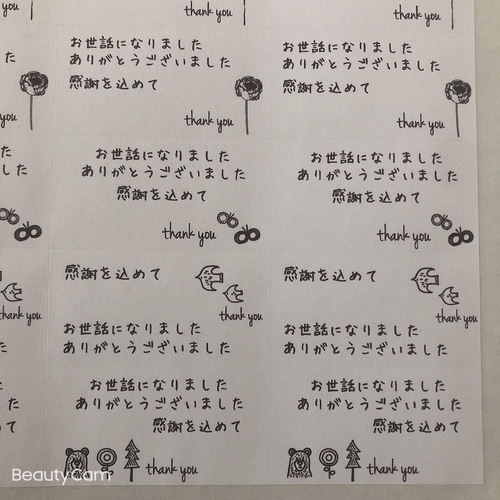 you
thank you
thank you
た
お世話になりました
ありがとうございました
感謝を込めて
thank you
お世話になりました
ありがとうございました
感謝を込めて
thank you
you
した
お世話になりました
ありがとうございました
感謝を込めて
thank you
お世話になりました
ありがとうございました
感謝を込めて
thank you
感謝を込めて
thank you
お世話になりました
ありがとうございました
感謝を込めて
thank you
お世話になりました
ありがとうございました
thank you
た
お世話になりました
ありがとうございました
感謝を込めて
thank you
お世話になりました
ありがとうございました
感謝を込めて
thank you
BeautyCam